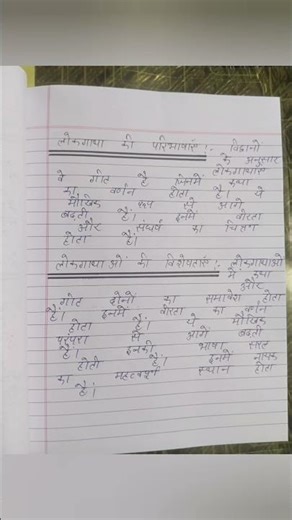 लोकगाथा की परिभाषाएं :- विद्वानों
के अनुसार
लोकगाथाएं
वे गीत है जिनमें कथा
का वर्णन होता है। ये
मौखिक रूप से आगे
बढ़ती है। इनमें वीरता
और संघर्ष का चित्रण
होता है।
लोकगाथाओं की विशेषताएं :- लोकगाथाओं
में कथा
और
गीत दोनों का समावेश होता
है। इनमें वीरता का वर्णन
होता है। ये मौखिक
परंपरा से आगे बढ़ती
है। इनकी भाषा सरल
होती है। इनमें नायक
का महत्वपूर्ण स्थान होता
है।